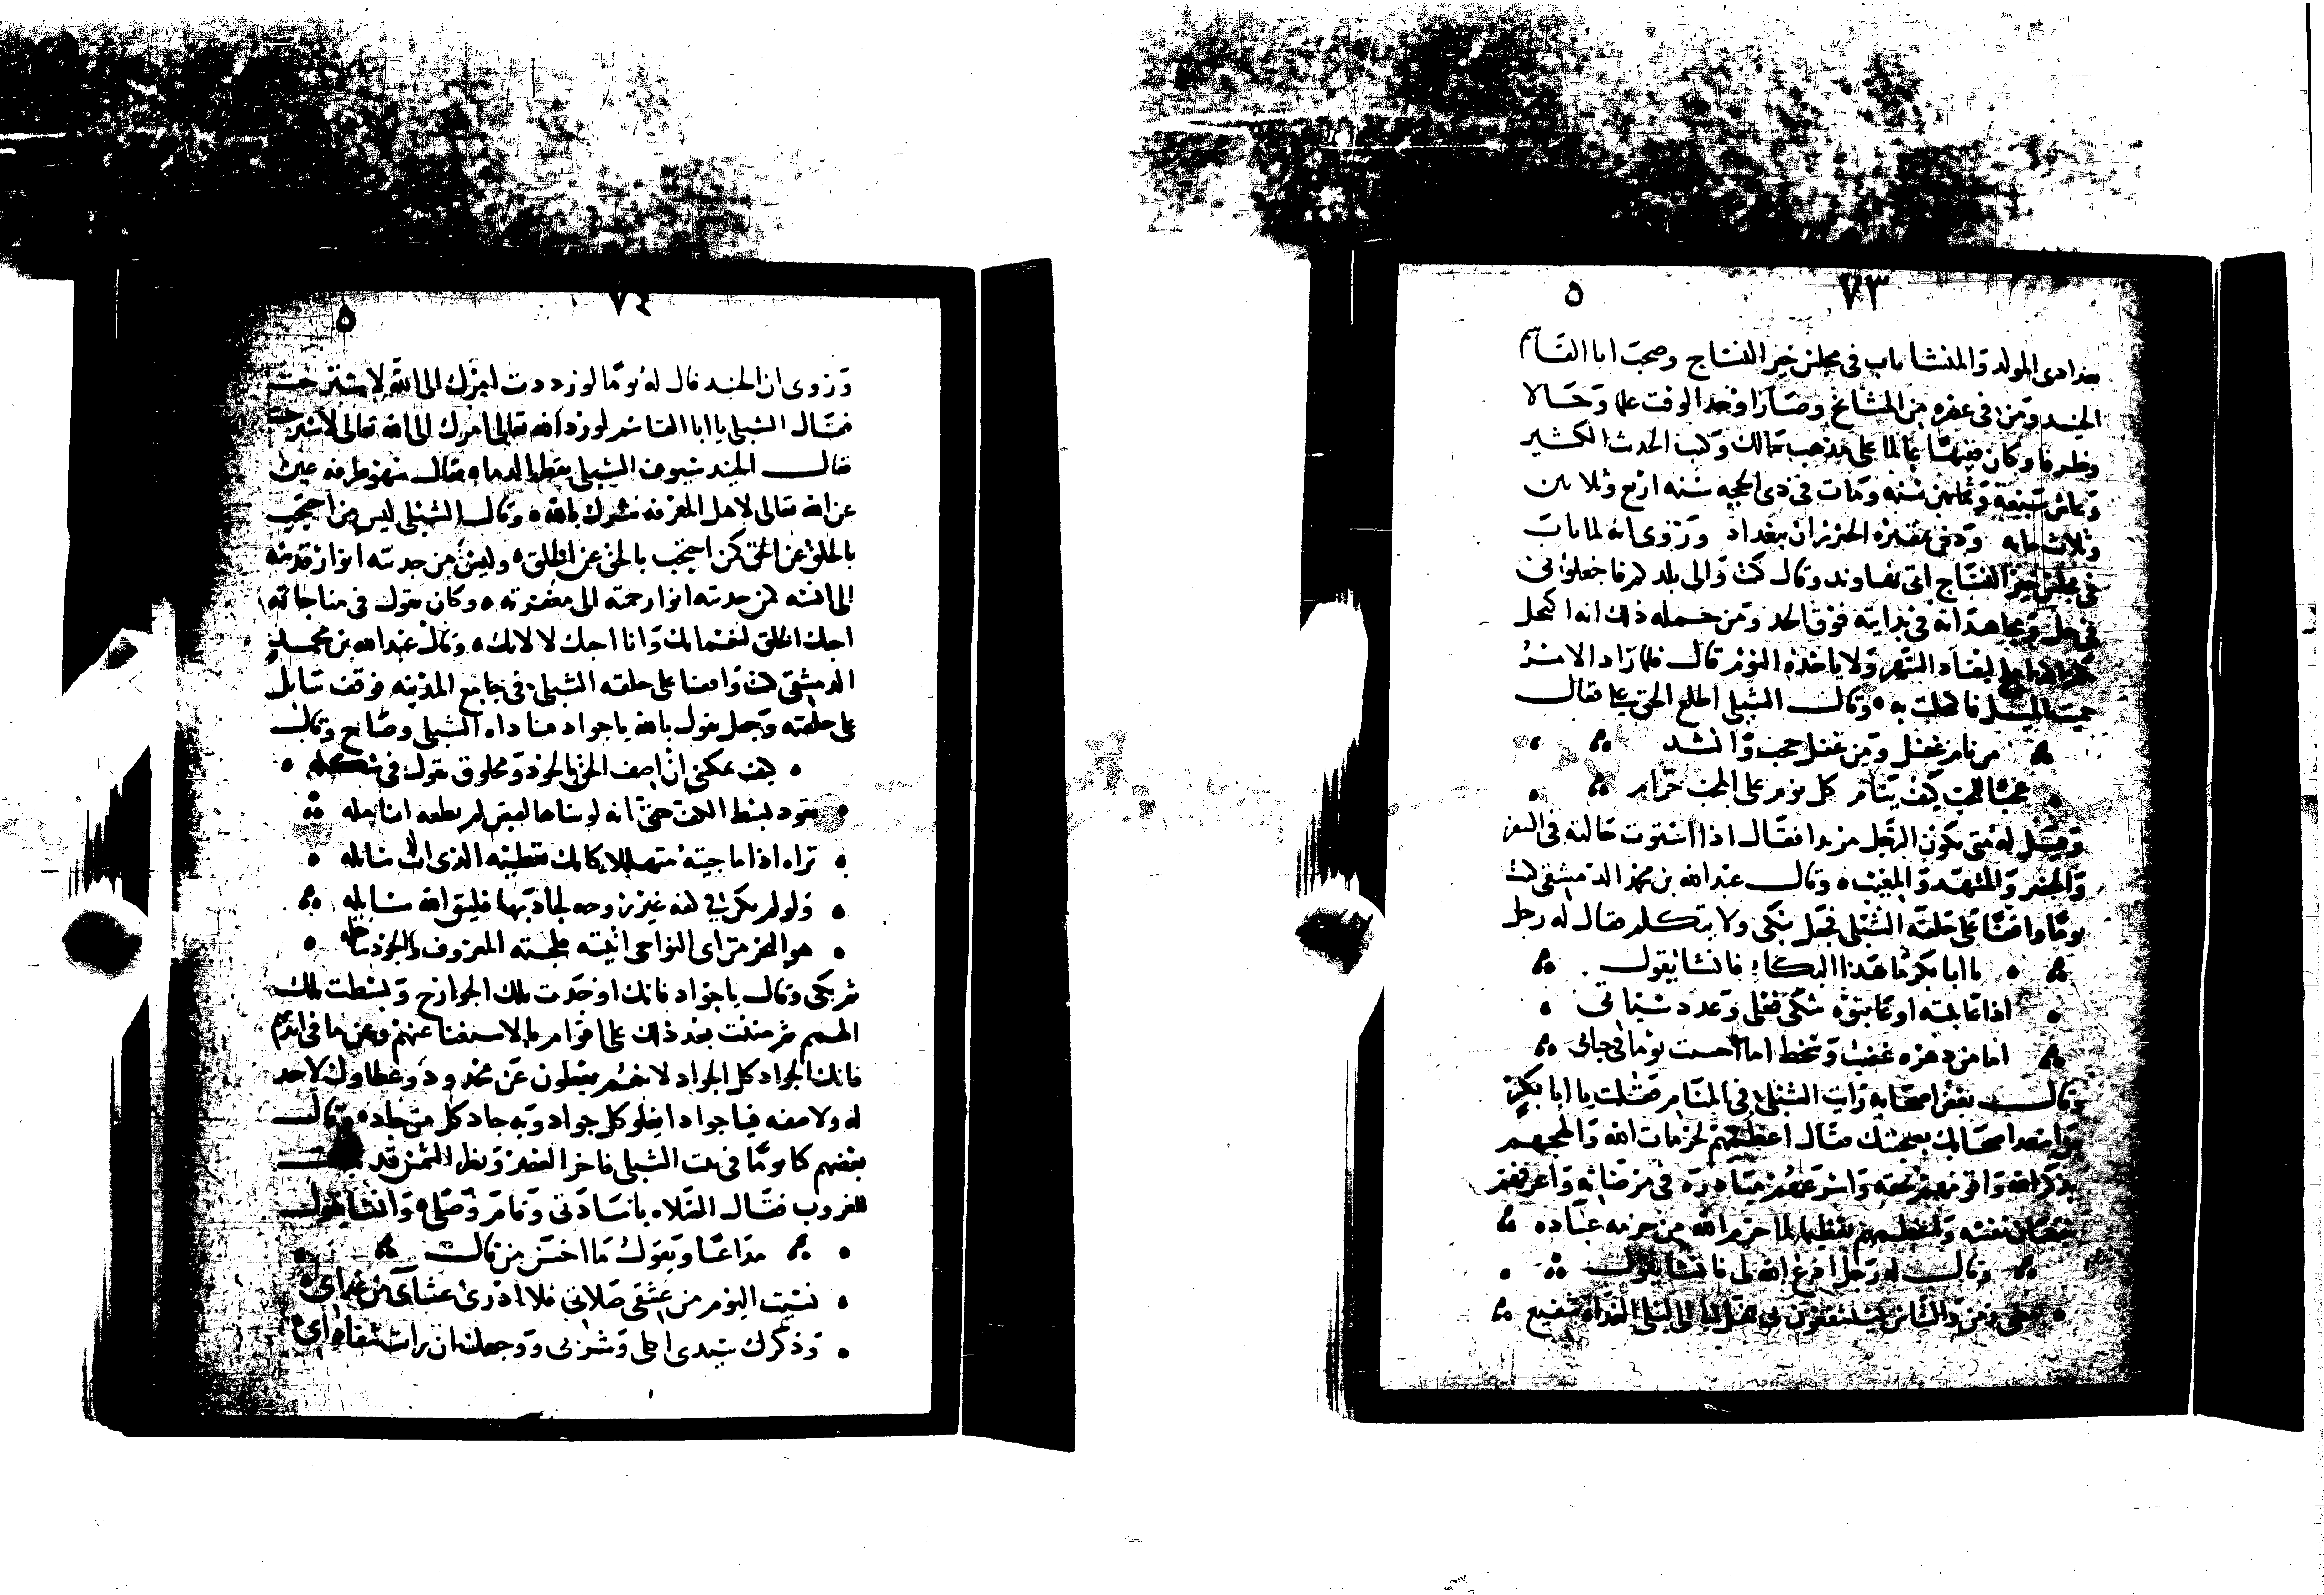 ٧٣
بغدادى المولد والمنشا تاب فى مجلس خير النساج وصحب ابا القاسم
الجنيد ومن فى عصره من المشائخ وصار اوحد الوقت علما وحالا
وظرفا وكان فقيها عالما على مذهب مالك وكتب الحديث الكثير
وعاش سبعة وثمانين سنه ومات فى ذى الحجه سنه اربع وثلاثين
وثلاث مايه ودفن بمقبرة الخيزران ببغداد وروى انه لما تاب
فى مجلس خير النساج اتى نهاوند وقال كنت والى بلدكم فاجعلونى
فى حل ومجاهداته فى بدايته فوق الحد ومن جمله ذلك انه اكتحل
ليعتاد السهر ولا ياخذه النوم قال فلما زاد الامر
حميت الميل فاكتحلت به وقال الشبلى اطلع الحق على فقال
من نام غفل ومن غفل حجب وانشد
عجبا للمحب كيف ينام كل نوم على المحب حرام
وقيل له متى يكون الرجل مريدا فقال اذا استوت حالته فى السفر
والحضر والمشهد والمغيب وقال عبد الله بن محمد الدمشقى كنت
يوما واقفا على حلقة الشبلى فجعل يبكى ولا يتكلم فقال له رجل
يا ابا بكر ما هذا البكا؛ فانشا يقول
اذا عاتبته او عاتبوه شكى فعلى وعدد سيئاتى
ايا من دهره غضب وسخط اما احسنت يوما فى حياتى
وقال بعض اصحابه رايت الشبلى فى المنام فقلت يا ابا بكر
من اسعد اصحابك بصحبتك فقال اعظمهم لحرمات الله والهجهم
بذكر الله واقومهم بحقه واسرعهم مبادرة فى مرضاته واعرفهم
بنقصان نفسه واعظمهم تعظيما لما حرم الله من حرمه عباده
وقال له رجل ادع الله لى فانشا يقول
مضى زمن والناس يستشفعون بى فهل لى الى ليلى الغداة شفيع
٧٤
وروى ان الجنيد قال له يوما لو رددت امرك الى الله لاسترحت
فقال الشبلى يا ابا القاسم لو رد الله تعالى امرك الى الله تعالى لاسترحت
فقال الجنيد سيوف الشبلى يقطر الدما وقال سهو طرفه عين
عن الله تعالى لاهل المعرفه شرك بالله وقال الشبلى ليس من احتجب
بالخلق عن الحق كمن احتجب بالحق عن الخلق وليس من جدبته انوار قدسه
الى انسه كمن جدبته انوار رحمته الى مغفرته وكان يقول فى مناجاته
احبك الخلق لنعمائك وانا احبك لالائك وقال عبد الله بن محمد
الدمشقى كنت واقفا على حلقه الشبلى فى جامع المدينه فوقف سايل
على حلقته وجعل يقول يا الله يا جواد فناداه الشبلى وصاح وقال
كيف يمكنى ان اصف الحق بالجود ومخلوق يقول فى شكله
تعود بسط الكف حتى انه لو ثناها لقبض لم تطعه انامله
تراه اذا ما جيته متهللا كانك تعطيه الذى انت سائله
ولو لم يكن فى كفه غير روحه لجاد بها فليتق الله سائله
هو البحر من اى النواحى اتيته فلجته المعروف والجود ساحله
ثم بكى وقال يا جواد فانك اوجدت تلك الجوارح وبسطت تلك
الهمم ثم مننت بعد ذلك على اقوام بالاستغنا عنهم وعن ما فى ايديهم
فانك الجواد كل الجواد لانهم يعطون عن محدود وعطاوك لا حد
له ولا صفه فيا جوادا يعلو كل جواد وبه جاد كل من جاد وقال
بعضهم كنا يوما فى بيت الشبلى فاخر العصر ونظر الشمس قد
للغروب فقال الصلاه يا ساداتى وقام وصلى وانشا يقول
مداعبا ويقول ما احسن من قال
نسيت اليوم من عشقى صلاتى فلا ادرى عشائى من غدائى
وذكرك سيدى اكلى وشربى ووجهك ان رايت شفاء دائى